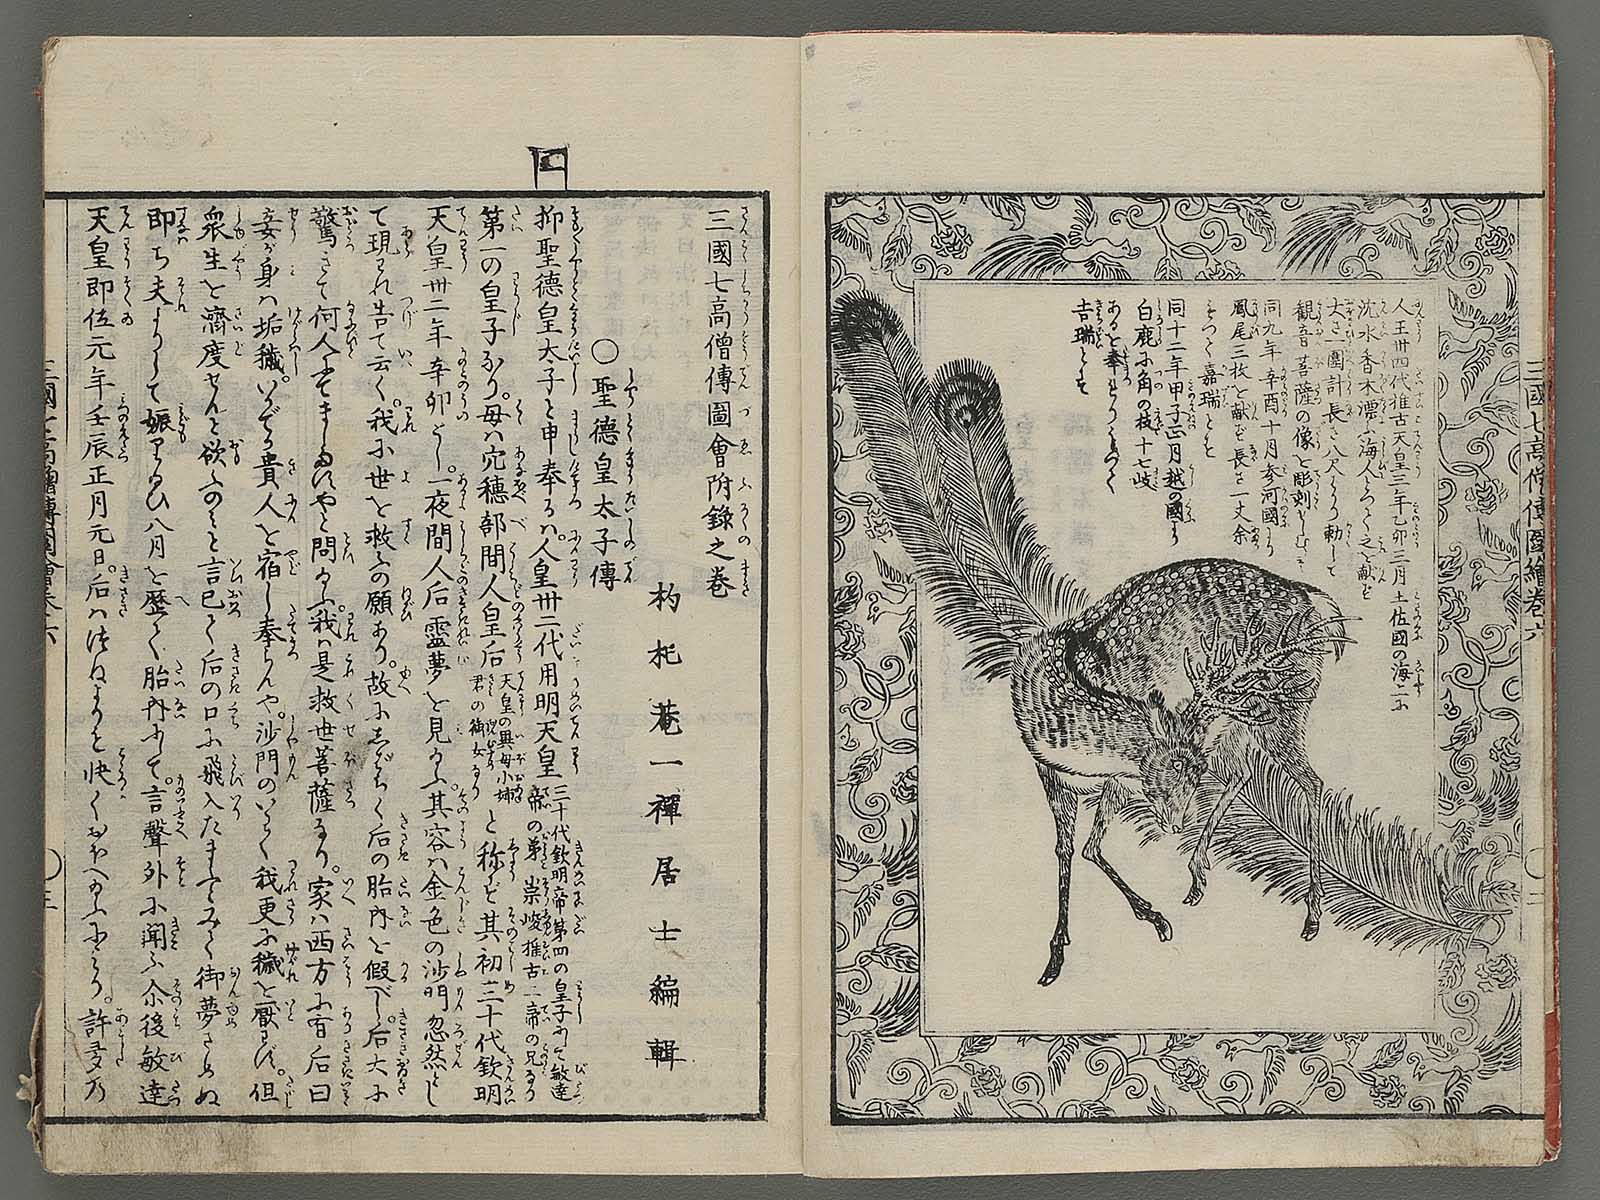 人王卅四代推古天皇三年乙卯三月土佐國の海上に
沈水香木漂ふ海人これを献ず
大さ一圍計長さ八尺なり勅して
観音菩薩の像を彫刻し
同九年辛酉十月参河國より
鳳尾三枚を献ず長さ一丈余
もつて嘉瑞とす
同十二年甲子正月越の國より
白鹿の角の枝十七岐
あるを奉りける
吉瑞とす
三國七高僧傳圖繪巻六
三國七高僧傳圖會附錄之巻
杓杔菴一禪居士編輯
〇聖德皇太子傳
抑聖德皇太子と申奉るハ人皇卅二代用明天皇三十代欽明帝第四の皇子にて敏達帝の弟崇峻推古二帝の兄なり
第一の皇子なり母ハ穴穂部間人皇后天皇の異母小姉君の御女なりと称ず其初三十代欽明
天皇卅二年辛卯どし一夜間人后靈夢を見たまふ其容ハ金色の沙門忽然とし
て現れ告て云く我に世を救ふの願あり故にしばらく后の胎内を假べし后大に
驚きて何人にてましますやと問たまふ我ハ是救世菩薩なり家ハ西方に有后曰
妾が身ハ垢穢いかでか貴人を宿し奉らんや沙門のいはく我更に穢を厭はず但
衆生を濟度せんと欲ふのミと言已て后の口に飛入たまふとみて御夢さめぬ
即ち夫よりして娠たまひ八月を歴て胎内にして言聲外に聞ふ尒後敏達
天皇即位元年壬辰正月元日后ハつねよりも快くおぼへたまふにより許多の
三國七高僧傳圖會巻六
〇三